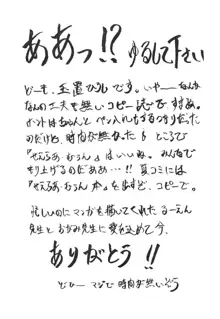 ああっ!? ゆるして下さい
どーも、玉置ひろしです。いやーなんか
なんの工夫も無いコピー誌ですみ。
ホントはちゃんとペン入れもするつもりだった
のだけど、時間が無かった! ところで
『せえらあ・むうん』はいいね。みんなで
もり上げるのだああ…!! 夏コミには
『せえらあ・むうん本』を出すぞ、コピーで。
忙しいのにマンガを描いてくれた るーえん
先生と おがみ先生に愛を込めて今、
ありがとう!!
どひー マジで 時間が無いぞう